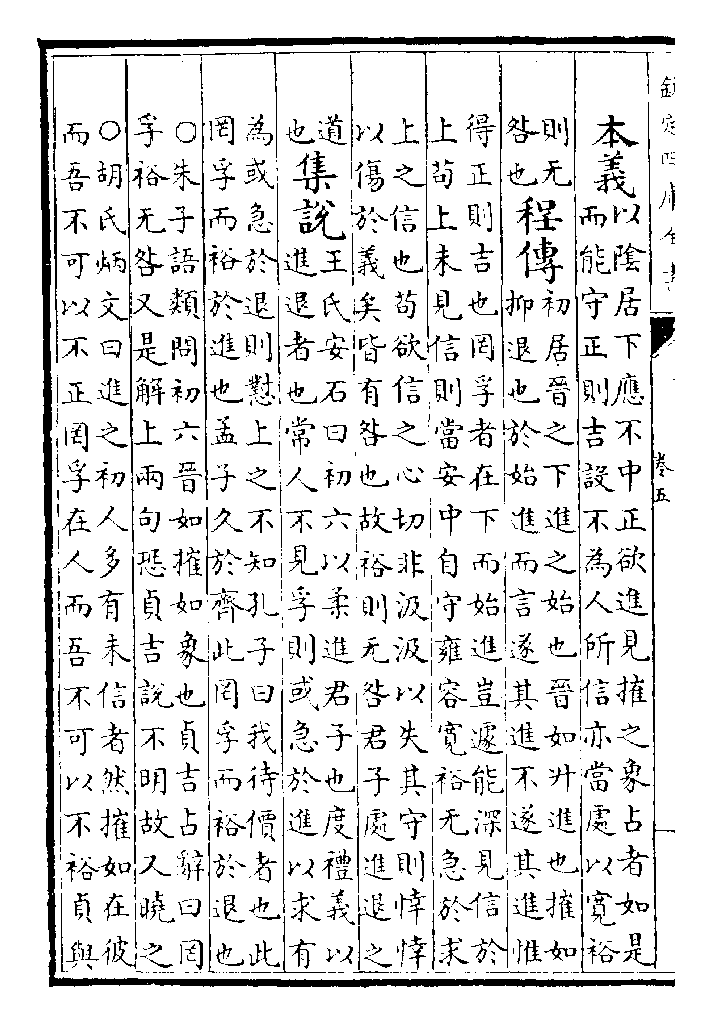 欽定四庫全書
卷五
本義以陰居下應不中正欲進見摧之象占者如是
而能守正則吉設不為人所信亦當處以寬裕
則无
咎也
程傳初居晉之下進之始也晉如升進也摧如
抑退也於始進而言遂其進不遂其進惟
得正則吉也罔孚者在下而始進豈遽能深見信於
上苟上未見信則當安中自守雍容寬裕无急於求
上之信也苟欲信之心切非汲汲以失其守則悻悻
以傷於義矣皆有咎也故裕則无咎君子處進退之
道
也
集說王氏安石曰初六以柔進君子也度禮義以
進退者也常人不見孚則或急於進以求有
為或急於退則懟上之不知孔子曰我待價者也此
罔孚而裕於進也孟子久於齊此罔孚而裕於退也
○朱子語類問初六晉如摧如象也貞吉占辭曰罔
孚裕无咎又是解上兩句恐貞吉說不明故又曉之
○胡氏炳文曰進之初人多有未信者然摧如在彼
而吾不可以不正罔孚在人而吾不可以不裕貞與